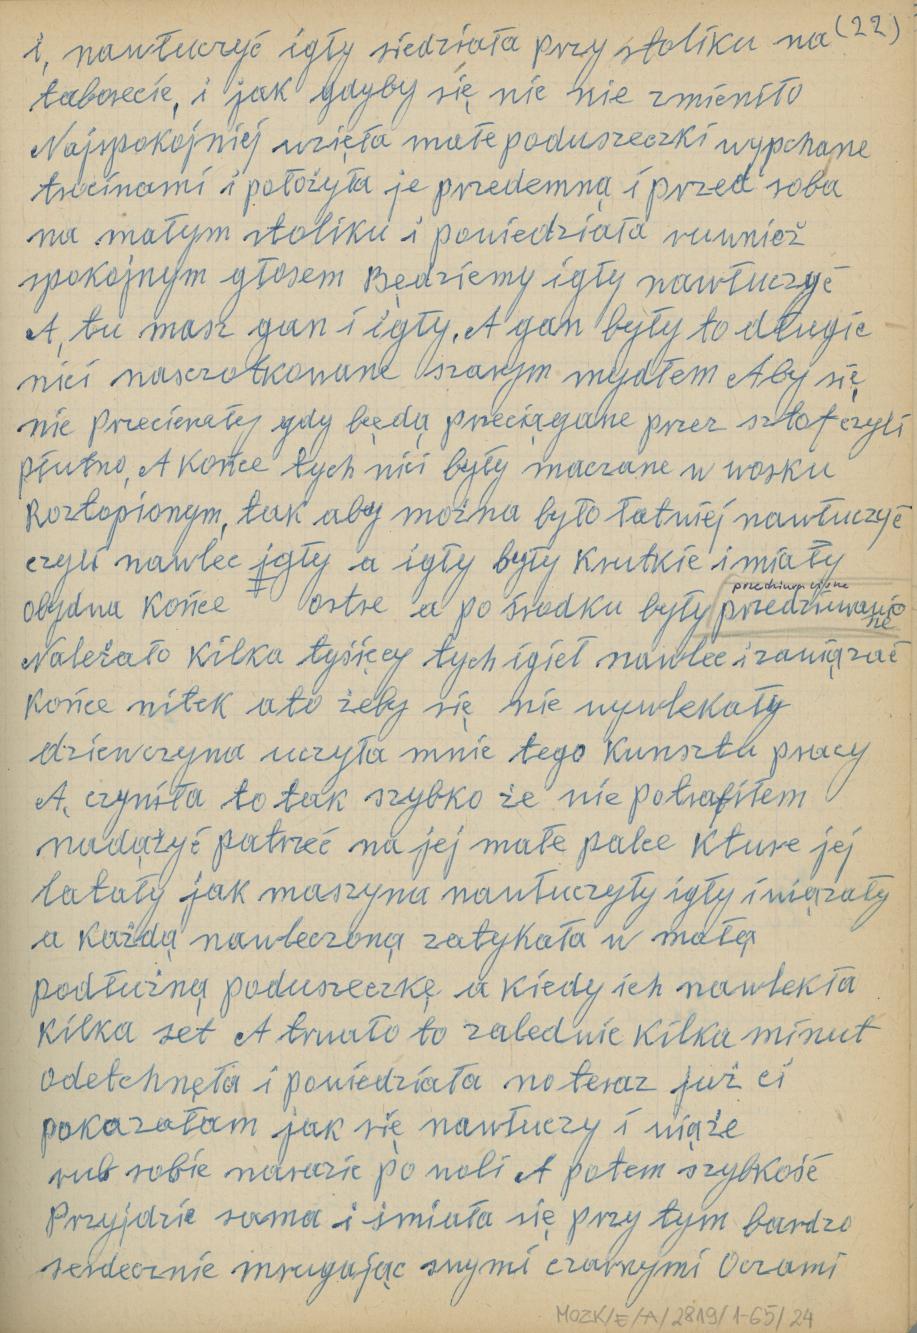 (22)
i, nawłuczyć igły siedziała przy stoliku na
taborecie, i jak gdyby się nic nie zmieniło
Najspokojniej wzięła małe poduszeczki wypchane
trocinami i położyła je przedemną i przed soba
na małym stoliku i powiedziała ruwnież
spokojnym głosem Będziemy igły nawłuczyć
A, tu masz gan i igły. A gan były to długie
nici naszczotkowane szarym mydłem Aby się
nie Przecierały gdy będą przeciągane przez sztof czyli
płutno, A Końce tych nici były maczane w wosku
Roztopionym, tak aby można było łatwiej nawłuczyć
czyli nawlec igły a igły były Krutkie i miały
obydwa Końce ostre a po środku były przedziurawio
ne
przedziurawione
Należało Kilka tysięcy tych igieł nawlec i zawiązać
Końce nitek ato żeby się nie wywlekały
dziewczyna uczyła mnie tego Kunsztu pracy
A, czyniła to tak szybko że nie potrafiłem
nadążyć patrzeć na jej małe palce Kture jej
latały jak maszyna nawłuczyły igły i wiązały
a Każdą nawleczoną zatykała w małą
podłużną poduszeczkę a Kiedy ich nawlekła
Kilka set A trwało to zalednie Kilka minut
Odetchnęła i powiedziała no teraz już ci
pokazałam jak się nawłuczy i wiąże
rub sobie narazie po woli A potem szybkość
Przyjdzie sama i śmiała się przy tym bardzo
serdecznie mrugając swymi czarnymi Oczami
MOZK/E/A/2819/1-65/24